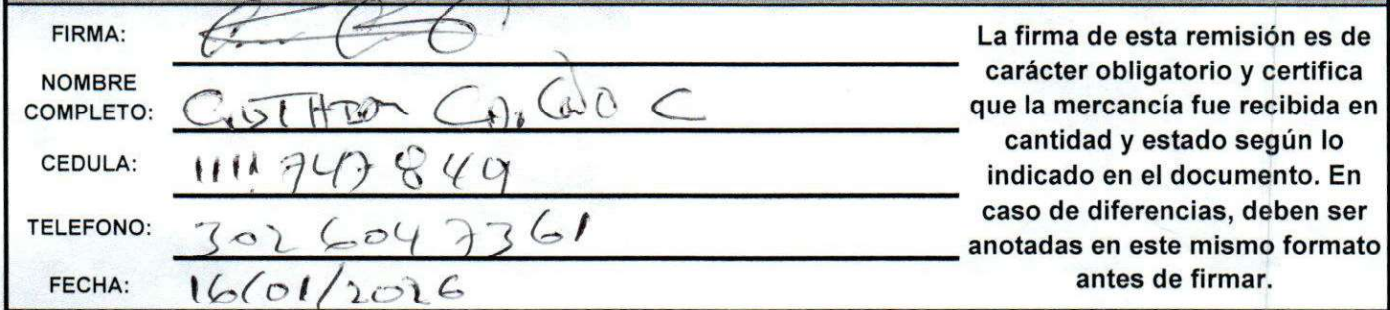 FIRMA:
NOMBRE COMPLETO: C
CEDULA: 1111747849
TELEFONO: 3026047361
FECHA: 16/01/2026
La firma de esta remisión es de
carácter obligatorio y certifica
que la mercancía fue recibida en
cantidad y estado según lo
indicado en el documento. En
caso de diferencias, deben ser
anotadas en este mismo formato
antes de firmar.